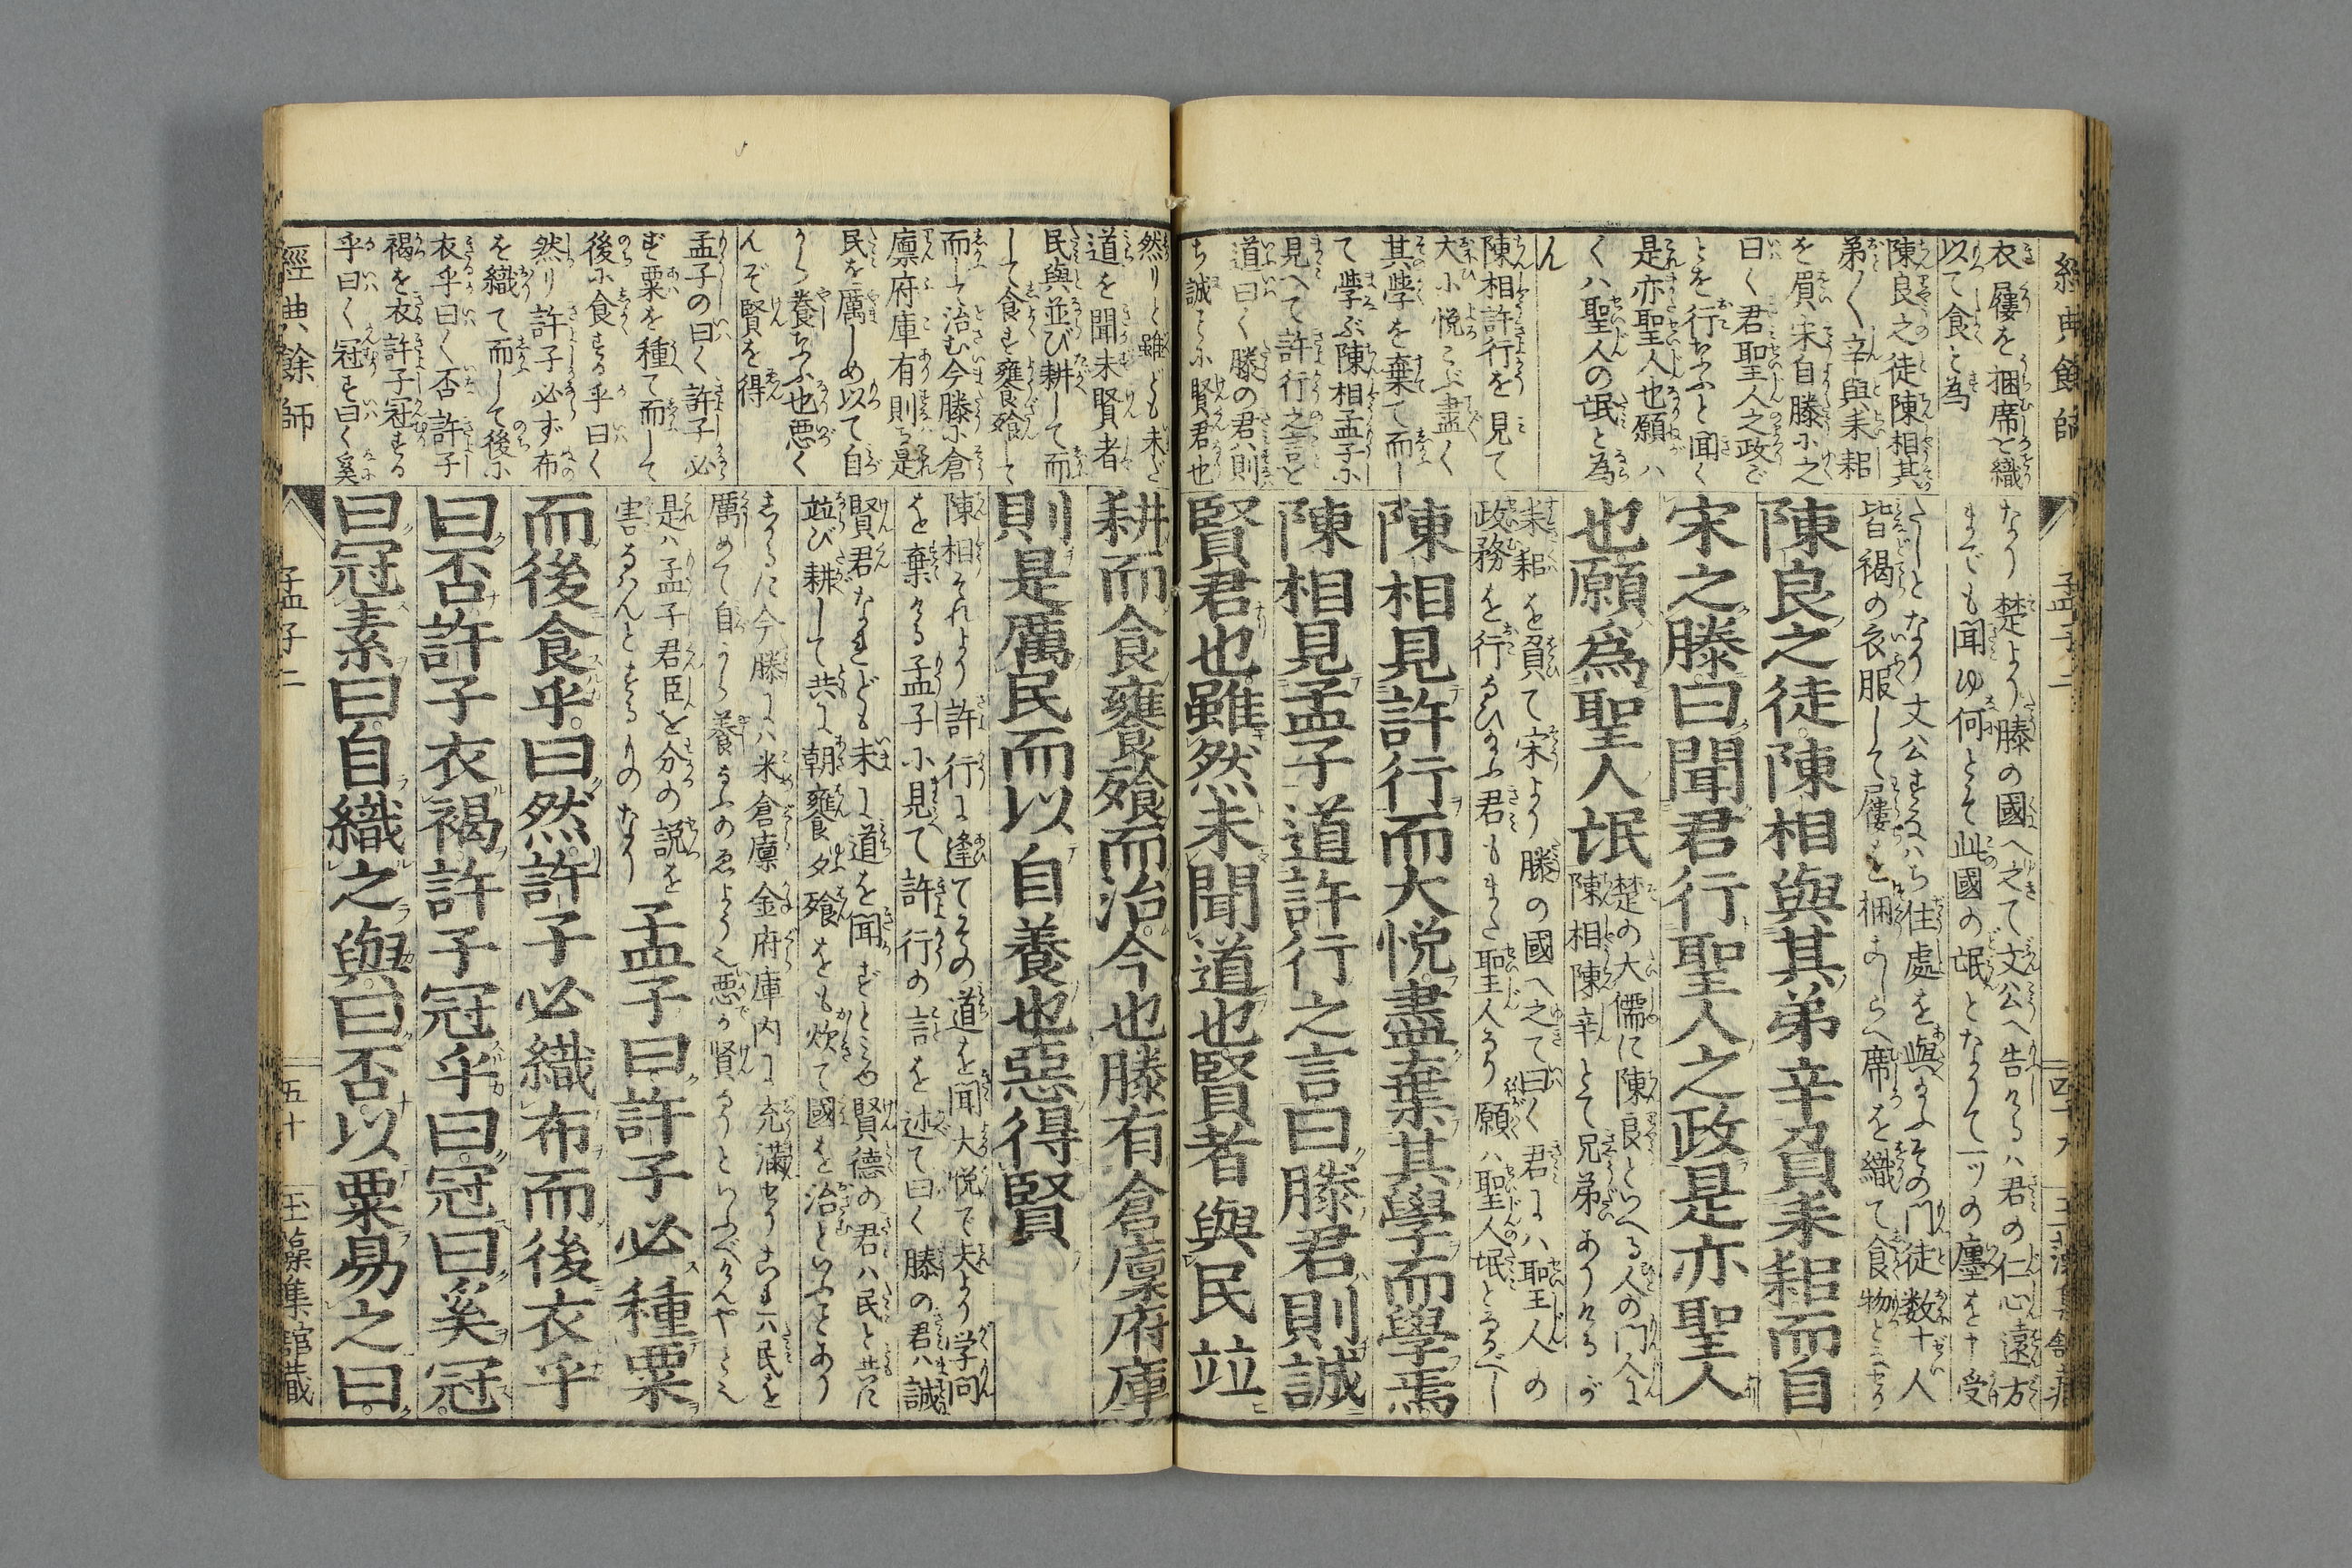 經典餘師
孟子二
衣屨を捆席を織
以て食と為
陳良之徒陳相其
弟辛與耒耜
を負宋自滕小之
曰く君聖人之政
を行ふと聞く
是亦聖人也願ハ
くハ聖人の氓と為
ん
陳相許行を見て
大小悦こぶ盡く
其學を棄て而し
て學ぶ陳相孟子小
見へて許行之言を
道曰く滕の君ハ則
ち誠小賢君也
なり楚より滕の國へ之て文公へ告るハ君の仁心遠方
までも聞ゆ何とぞ此國の氓となりて一ツの廛を受
たしとなり文公すなハち住處を與ふその門徒数十人
皆褐の衣服して屨を捆こしらへ席を織て食物とせり
陳良之徒。陳相與其弟辛負耒耜而自
宋之滕。曰聞君行聖人之政是亦聖人
也願爲聖人氓
楚の大儒に陳良といへる人の門人に
陳相陳辛とて兄弟ありけるが
耒耜を負て宋より滕の國へ之て曰く君にハ聖人の
政務を行ひ給ふ君もまた聖人なり願ハ聖人の氓となるべし
陳相見許行而大悦。盡棄其學而學焉
陳相見孟子道許行之言曰。滕君則誠
賢君也。雖然未聞道也賢者與民竝
然りと雖ども未ざ
道を聞未賢者
民與並び耕して而
して食す饔飧して
而して治む今滕小倉
廩府庫有則ち是
民を厲しめ以て自
から養ふ也悪く
んぞ賢を得
孟子の曰く許子必
ず粟を種て而して
後小食する乎曰く
然り許子必ず布
を織て而して後小
衣乎曰く否許子
褐を衣許子冠する
乎曰く冠す曰く奚
耕而食饔飧而治。今也滕有倉廩府庫
則是厲民而以自養也惡得賢
陳相それより許行に逢てその道を聞大悦で夫より学問
を棄ける孟子小見て許行の言を述て曰く滕の君ハ誠
賢君なれども未に道を聞ざところ賢德の君ハ民と共に
竝び耕して共に朝饔夕飧をも炊て國を治といふことあり
しかるに今滕にハ米倉廩金府庫内に充滿せりこれハ民を
厲めて自から養ふのゑようえ悪が賢なりといふべけんやとえ
是ハ孟子君臣を分の説を
害なハんとするものなり
孟子曰。許子必種粟
而後食乎。曰然。許子必織布而後衣乎
曰否許子衣褐。許子冠乎曰。冠曰奚冠。
曰冠素曰。自織之與。曰否。以粟易之曰。
經典餘師
孟子二
五十
玉藻集館藏